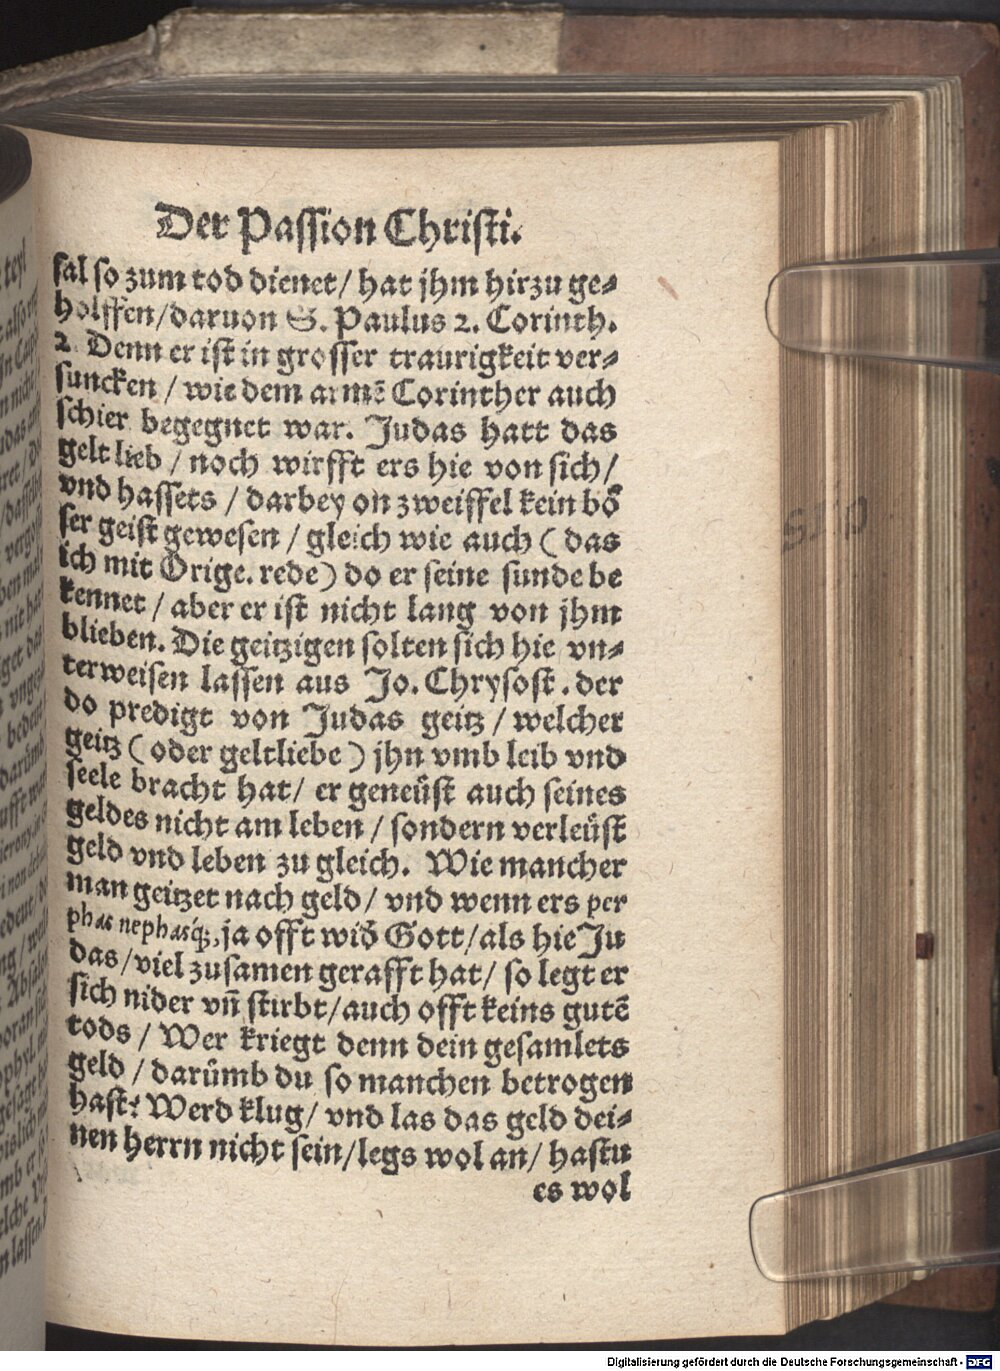 Der Passion Christi.
sal so zum tod dienet / hat jhm hirzu ge⸗
holffen / daruon S. Paulus 2. Corinth.
2. Denn er ist in grosser traurigkeit ver⸗
suncken / wie dem armē Corinther auch
schier begegnet war. Judas hatt das
gelt lieb / noch wirfft ers hie von sich /
vnd hassets / darbey on zweiffel kein bö
ser geist gewesen / gleich wie auch ( das
ich mit Orige. rede ) do er seine sunde be
kennet / aber er ist nicht lang von jhm
blieben. Die geitzigen solten sich hie vn⸗
terweisen lassen aus Jo. Chrysost. der
do predigt von Judas geitz / welcher
geitz ( oder geltliebe ) jhn vmb leib vnd
seele bracht hat / er geneüst auch seines
geldes nicht am leben / sondern verleüst
geld vnd leben zu gleich. Wie mancher
man geitzet nach geld / vnd wenn ers per
phas nephasq́;, ja offt wid̄ Gott / als hie Ju
das / viel zusamen gerafft hat / so legt er
sich nider vn̄ stirbt / auch offt keins gutē
tods / Wer kriegt denn dein gesamlets
geld / darümb du so manchen betrogen
hast? Werd klug / vnd las das geld dei⸗
nen herrn nicht sein / legs wol an / hastu
es wol
Digitalisierung gefördert durch die Deutsche Forschungsgemeinschaft - DFG